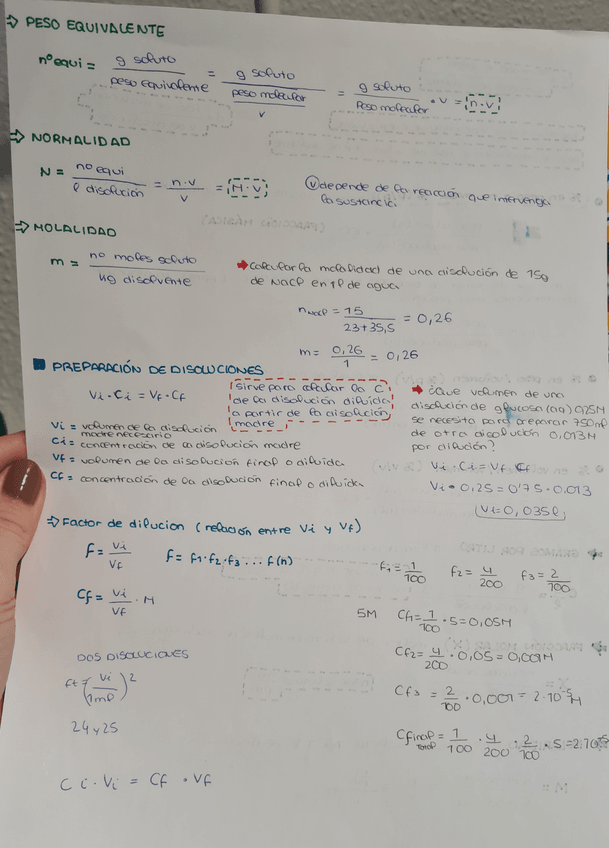 ⇒ PESO EQUIVALENTE
nº equi = g soluto / peso equivalente = g soluto / (peso molecular / v) = g soluto / Peso molecular · v = n·v
⇒ NORMALIDAD
N = nº equi / l disolución = n·v / v = M·v
ⓥ depende de la reacción que intervenga
la sustancia.
⇒ MOLALIDAD
m = nº moles soluto / kg disolvente
➔ Calcular la molalidad de una disolución de 15g
de NaCl en 1l de agua
n NaCl = 15 / 23+35,5 = 0,26
m = 0,26 / 1 = 0,26
■ PREPARACIÓN DE DISOLUCIONES
Vi · Ci = Vf · Cf
sirve para calcular la C
de la disolución diluida
a partir de la disolución
madre
Vi = volumen de la disolución
madre necesario
Ci = concentración de la disolución madre
Vf = volumen de la disolución final o diluida
Cf = concentración de la disolución final o diluida
➔ ¿Que volumen de una
disolución de glucosa (aq) 0,25M
se necesita para preparar 750ml
de otra disolución 0,013M
por dilución?
Vi · Ci = Vf · Cf
Vi · 0,25 = 0'75 · 0,013
Vi = 0,035l
⇒ Factor de dilucion (relación entre Vi y Vf)
F = Vi / Vf
F = f1·f2·f3 ... f(n)
Cf = Vi / Vf · M
f1 = 1/100 f2 = 4/200 f3 = 2/100
5M Cf1 = 1/100 · 5 = 0,05M
Cf2 = 4/200 · 0,05 = 0,001M
Cf3 = 2/100 · 0,001 = 2·10⁻⁵M
Cfinal = 1/100 · 4/200 · 2/100 · 5 = 2·10⁻⁵
DOS DISOLUCIONES
ft = (Vi / 1ml)²
24 y 25
Ci · Vi = Cf · Vf